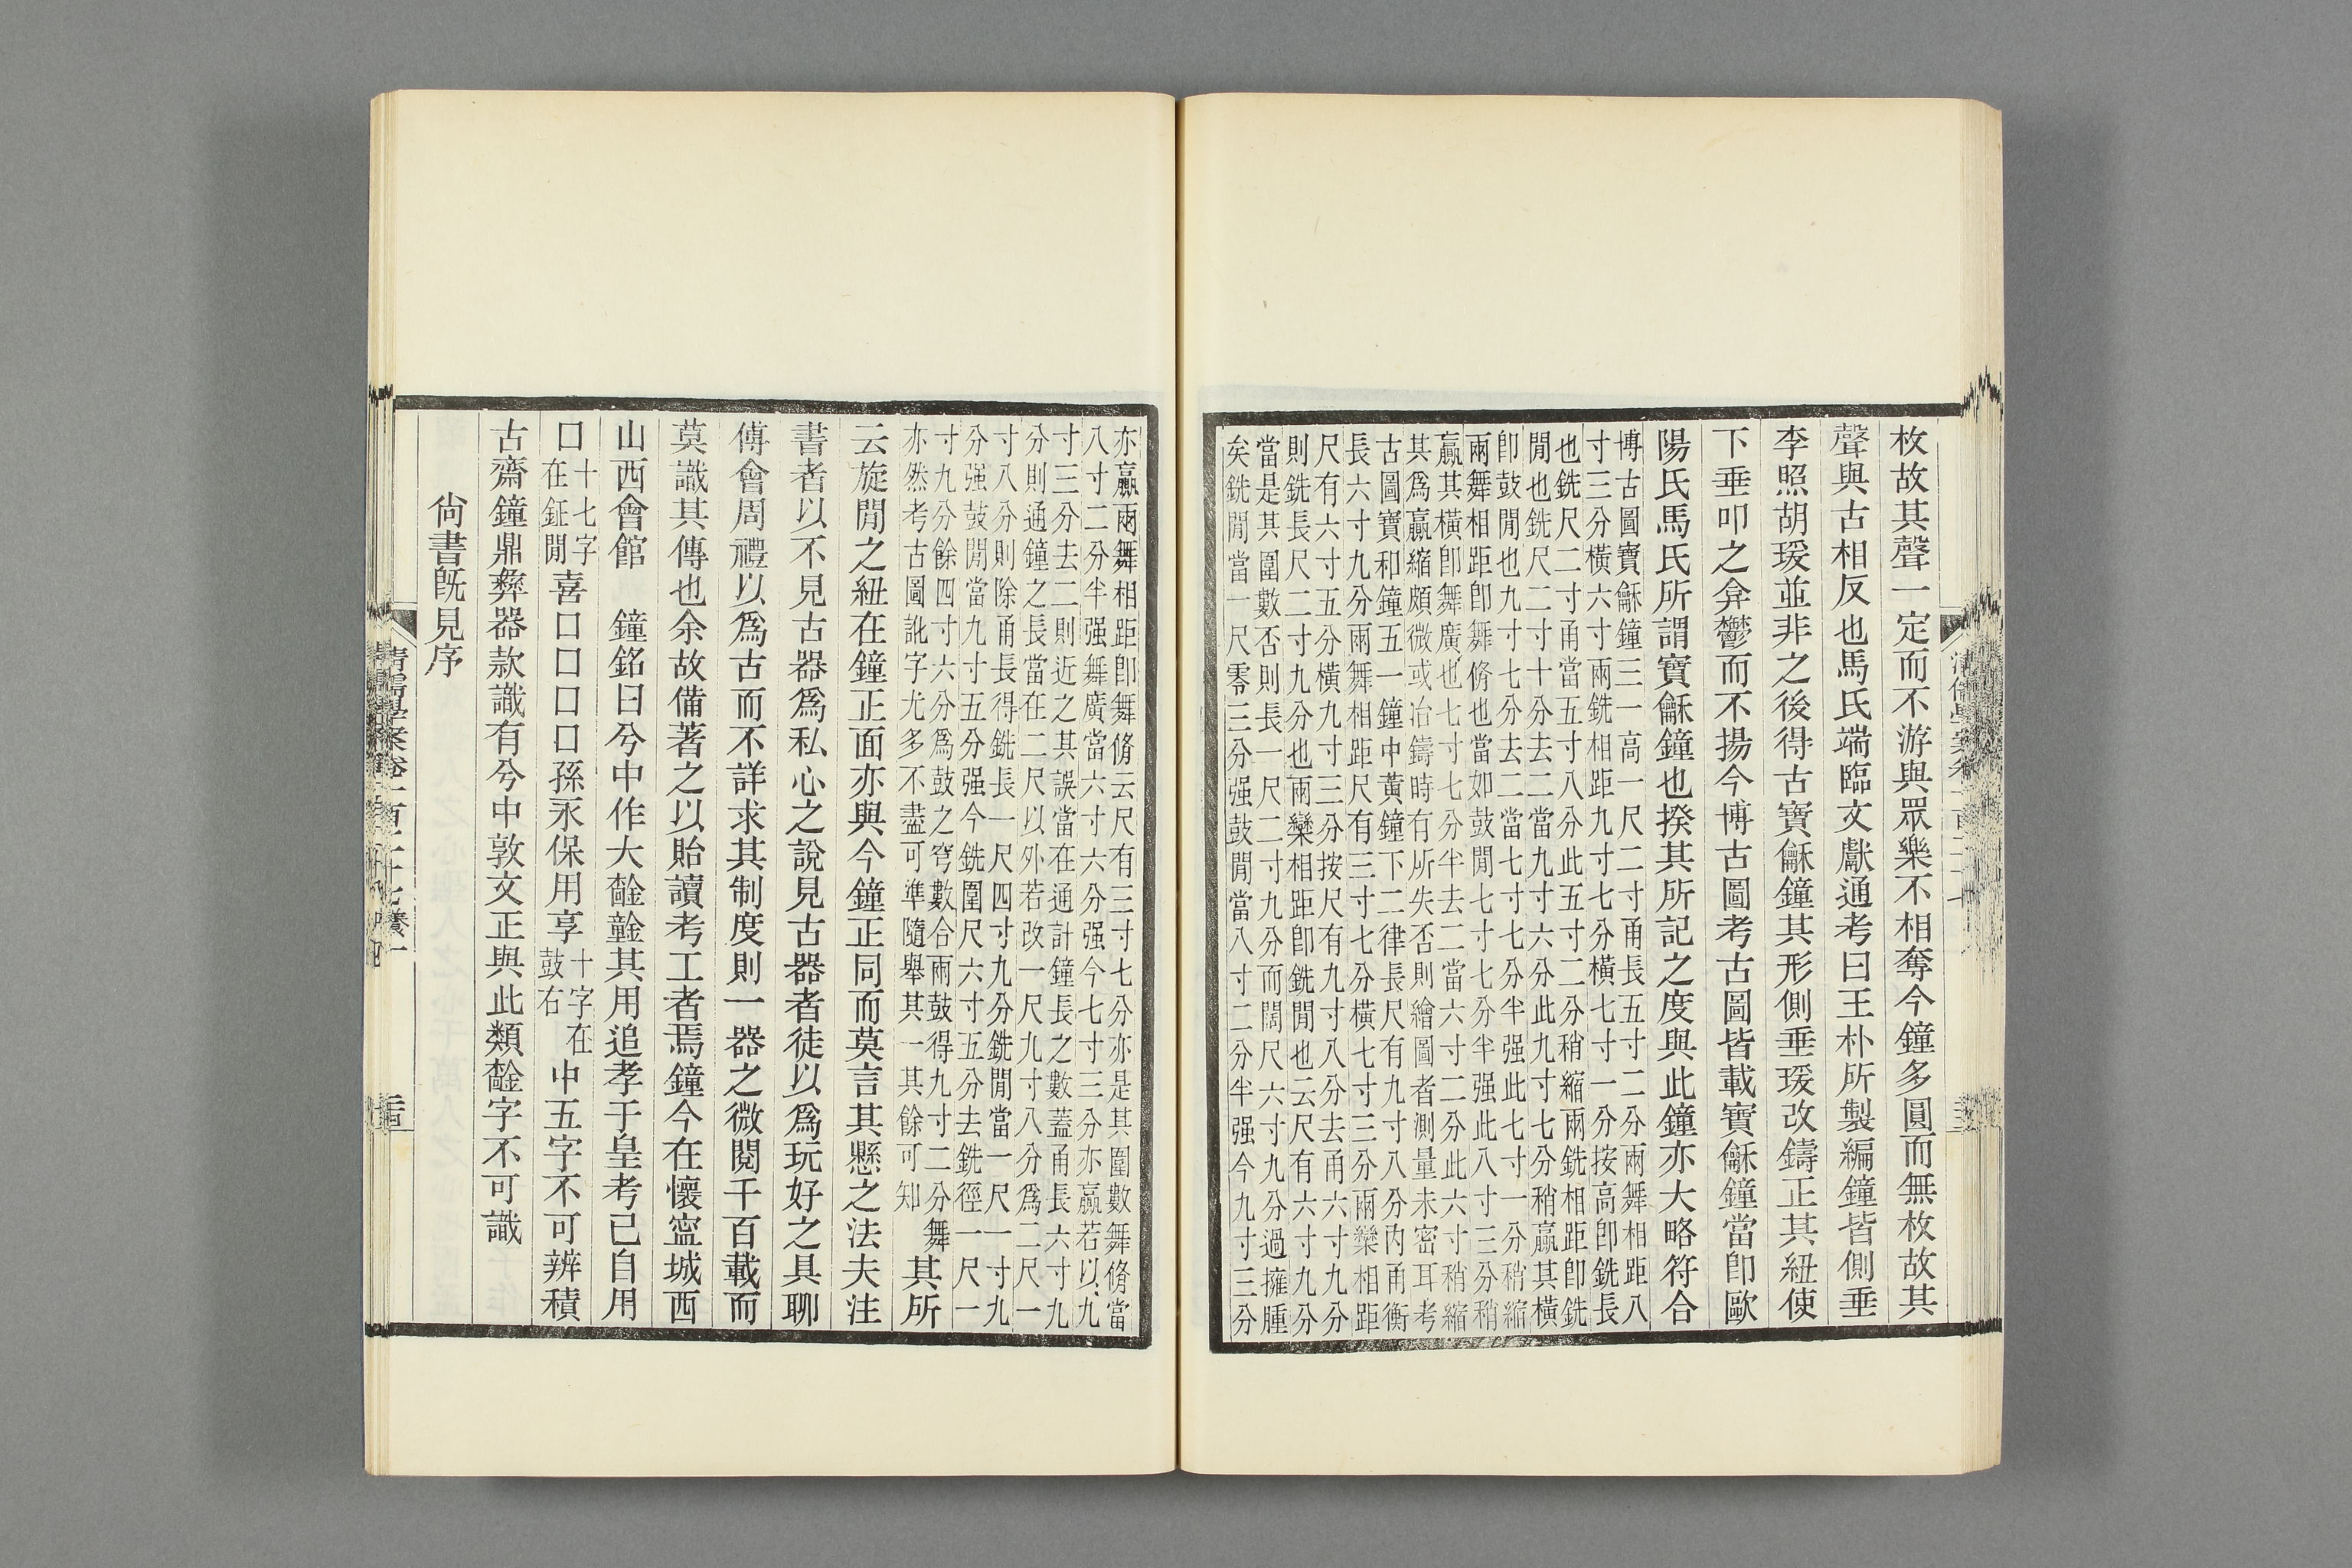 枚故其聲一定而不游與眾樂不相奪今鐘多圓而無枚故其
聲與古相反也馬氏端臨文獻通考曰王朴所製編鐘皆側垂
李照胡瑗並非之後得古寶龢鐘其形側垂瑗改鑄正其紐使
下垂叩之弇鬱而不揚今博古圖考古圖皆載寶龢鐘當卽歐
陽氏馬氏所謂寶龢鐘也揆其所記之度與此鐘亦大略符合
博古圖寶龢鐘三一高一尺二寸甬長五寸二分兩舞相距八
寸三分橫六寸兩銑相距九寸七分橫七寸一分按高卽銑長
也銑尺二寸甬當五寸八分此五寸二分稍縮兩銑相距卽銑
閒也銑尺二寸十分去二當九寸六分此九寸七分稍贏其橫
卽鼓閒也九寸七分去二當七寸七分半强此七寸一分稍縮
兩舞相距卽舞脩也當如鼓閒七寸七分半强此八寸三分稍
贏其橫卽舞廣也七寸七分半去二當六寸二分此六寸稍縮
其爲贏縮頗微或冶鑄時有所失否則繪圖者測量未密耳考
古圖寶和鐘五一鐘中黃鐘下二律長尺有九寸八分內甬衡
長六寸九分兩舞相距尺有三寸七分橫七寸三分兩欒相距
尺有六寸五分橫九寸三分按尺有九寸八分去甬六寸九分
則銑長尺二寸九分也兩欒相距卽銑閒也云尺有六寸九分
當是其圍數否則長一尺二寸九分而闊尺六寸九分過擁腫
矣銑閒當一尺零三分强鼓閒當八寸二分半强今九寸三分
亦贏兩舞相距卽舞脩云尺有三寸七分亦是其圍數舞脩當
八寸二分半强舞廣當六寸六分强今七寸三分亦贏若以九
寸三分去二則近之其誤當在通計鐘長之數蓋甬長六寸九
分則通鐘之長當在二尺以外若改一尺九寸八分爲二尺一
寸八分則除甬長得銑長一尺四寸九分銑閒當一尺一寸九
分强鼓閒當九寸五分强今銑圍尺六寸五分去銑徑一尺一
寸九分餘四寸六分爲鼓之穹數合兩鼓得九寸二分舞
亦然考古圖訛字尤多不盡可準隨舉其一其餘可知
其所
云旋閒之紐在鐘正面亦與今鐘正同而莫言其懸之法夫注
書者以不見古器爲私心之說見古器者徒以爲玩好之具聊
傅會周禮以爲古而不詳求其制度則一器之微閱千百載而
莫識其傳也余故備著之以貽讀考工者焉鐘今在懷寍城西
山西會館　鐘銘曰兮中作大𨟻龢其用追孝于皇考己自用
口十七字在鉦閒喜口口口口孫永保用享十字在鼓右中五字不可辨積
古齋鐘鼎彝器款識有兮中敦文正與此類𨟻字不可識
尙書旣見序
清儒學案卷一百二十七